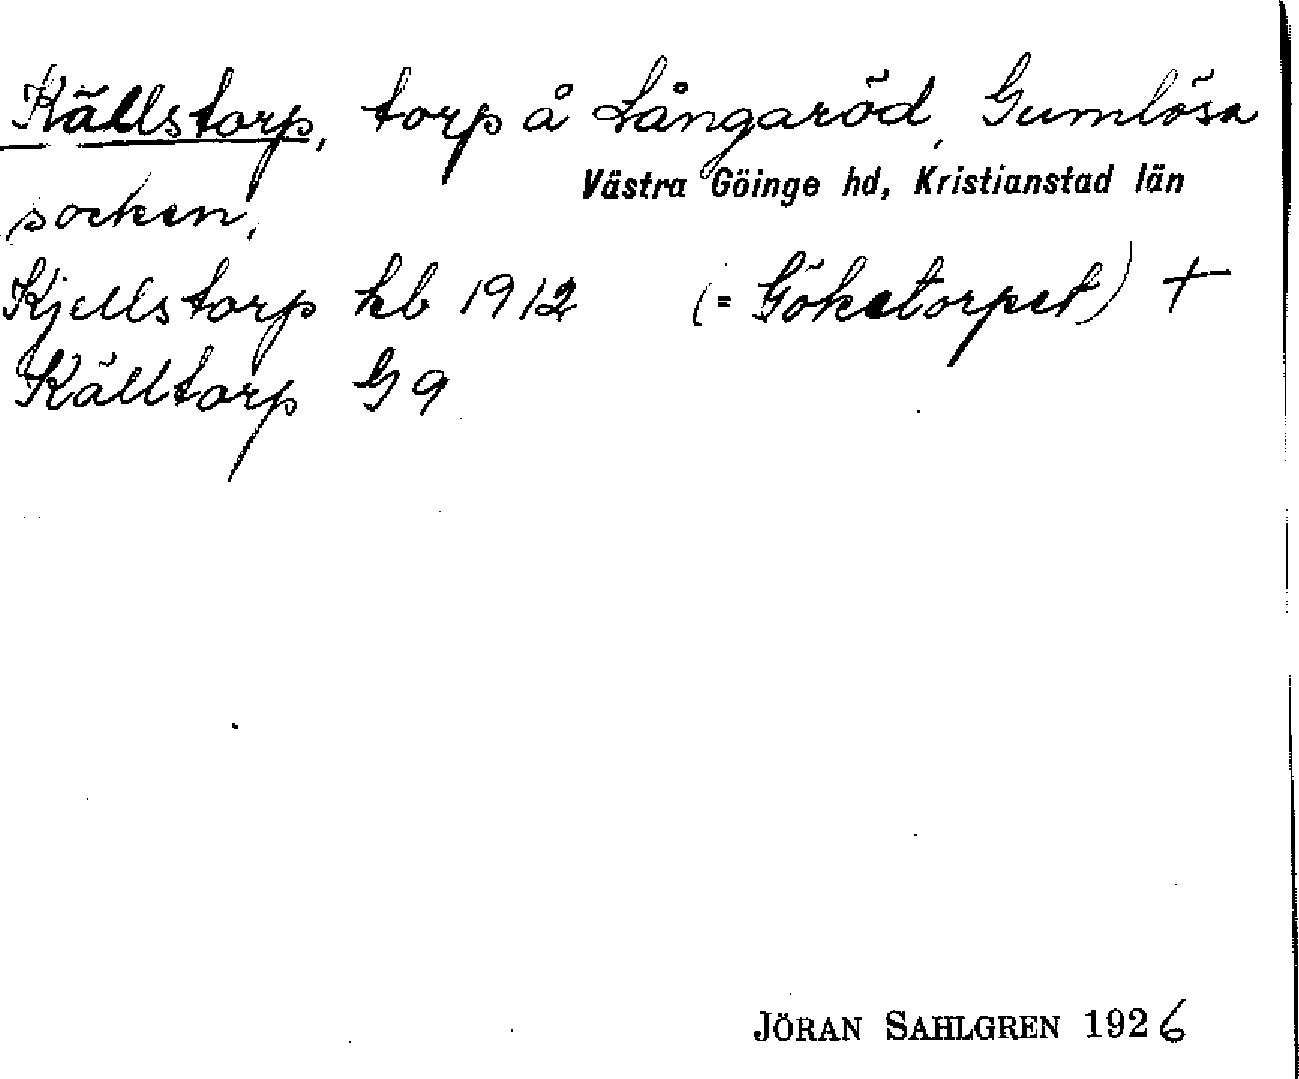 Källstorp, torp å Långaröd, Gumlösa
Västra Göinge hd, Kristianstad län
socken,
Kjellstorp hb 1912 (= Göketorpet) +
Källtorp G 9
JÖRAN SAHLGREN 1926